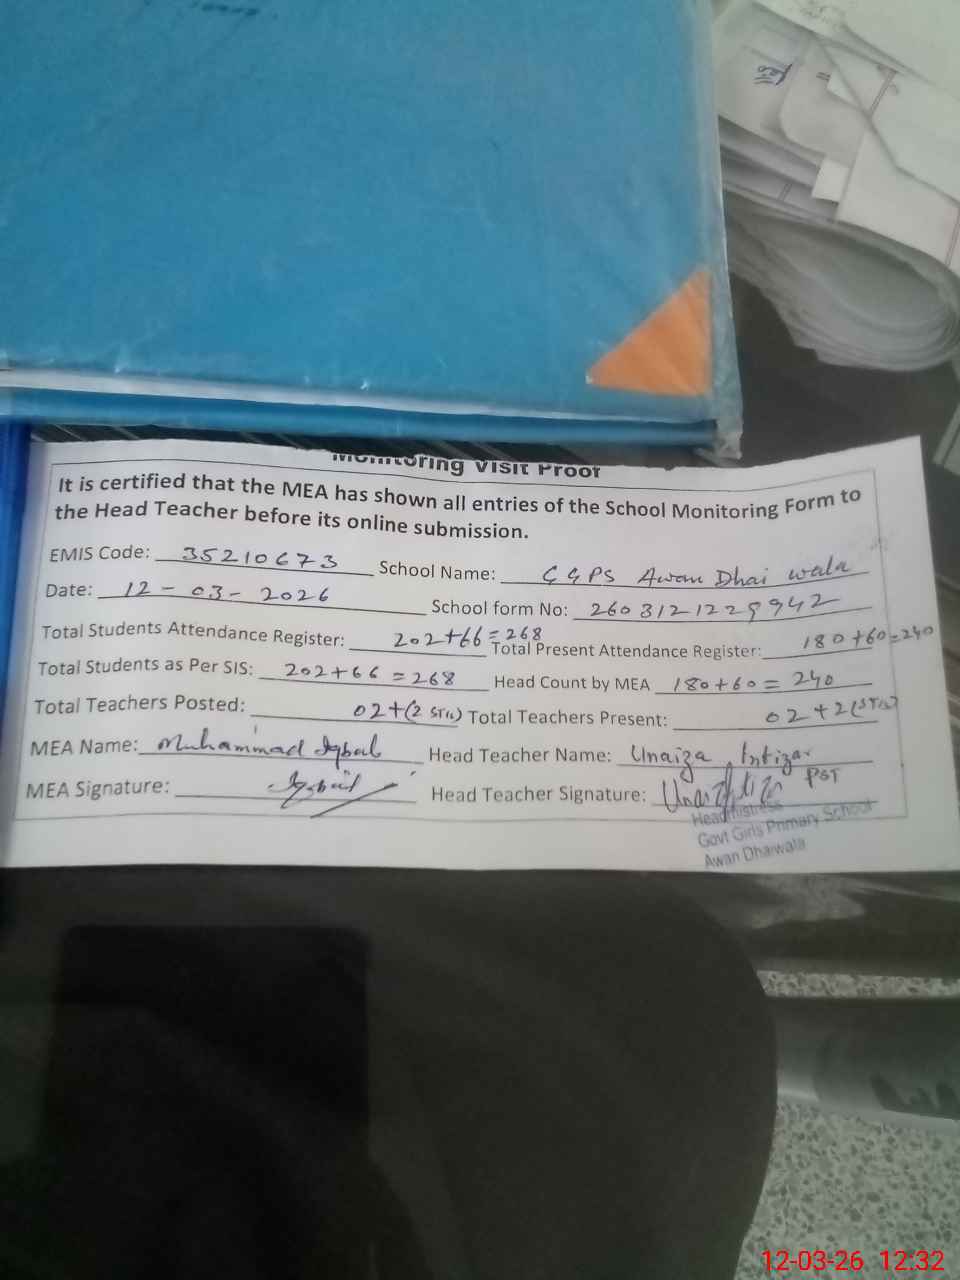 Monitoring Visit Proof
It is certified that the MEA has shown all entries of the School Monitoring Form to
the Head Teacher before its online submission.
EMIS Code: 35210673 School Name: GGPS Awan Dhai wala
Date: 12-03-2026 School form No: 2603121229942
Total Students Attendance Register: 202+66=268 Total Present Attendance Register: 180+60=240
Total Students as Per SIS: 202+66=268 Head Count by MEA 180+60=240
Total Teachers Posted: 02+(2 STIs) Total Teachers Present: 02+2(STIs)
MEA Name: Muhammad Iqbal Head Teacher Name: Unaiza Intizar
PST
MEA Signature: Iqbal Head Teacher Signature:
Headmistress
Govt Girls Primary School
Awan Dhaiwala
12-03-26 12:32